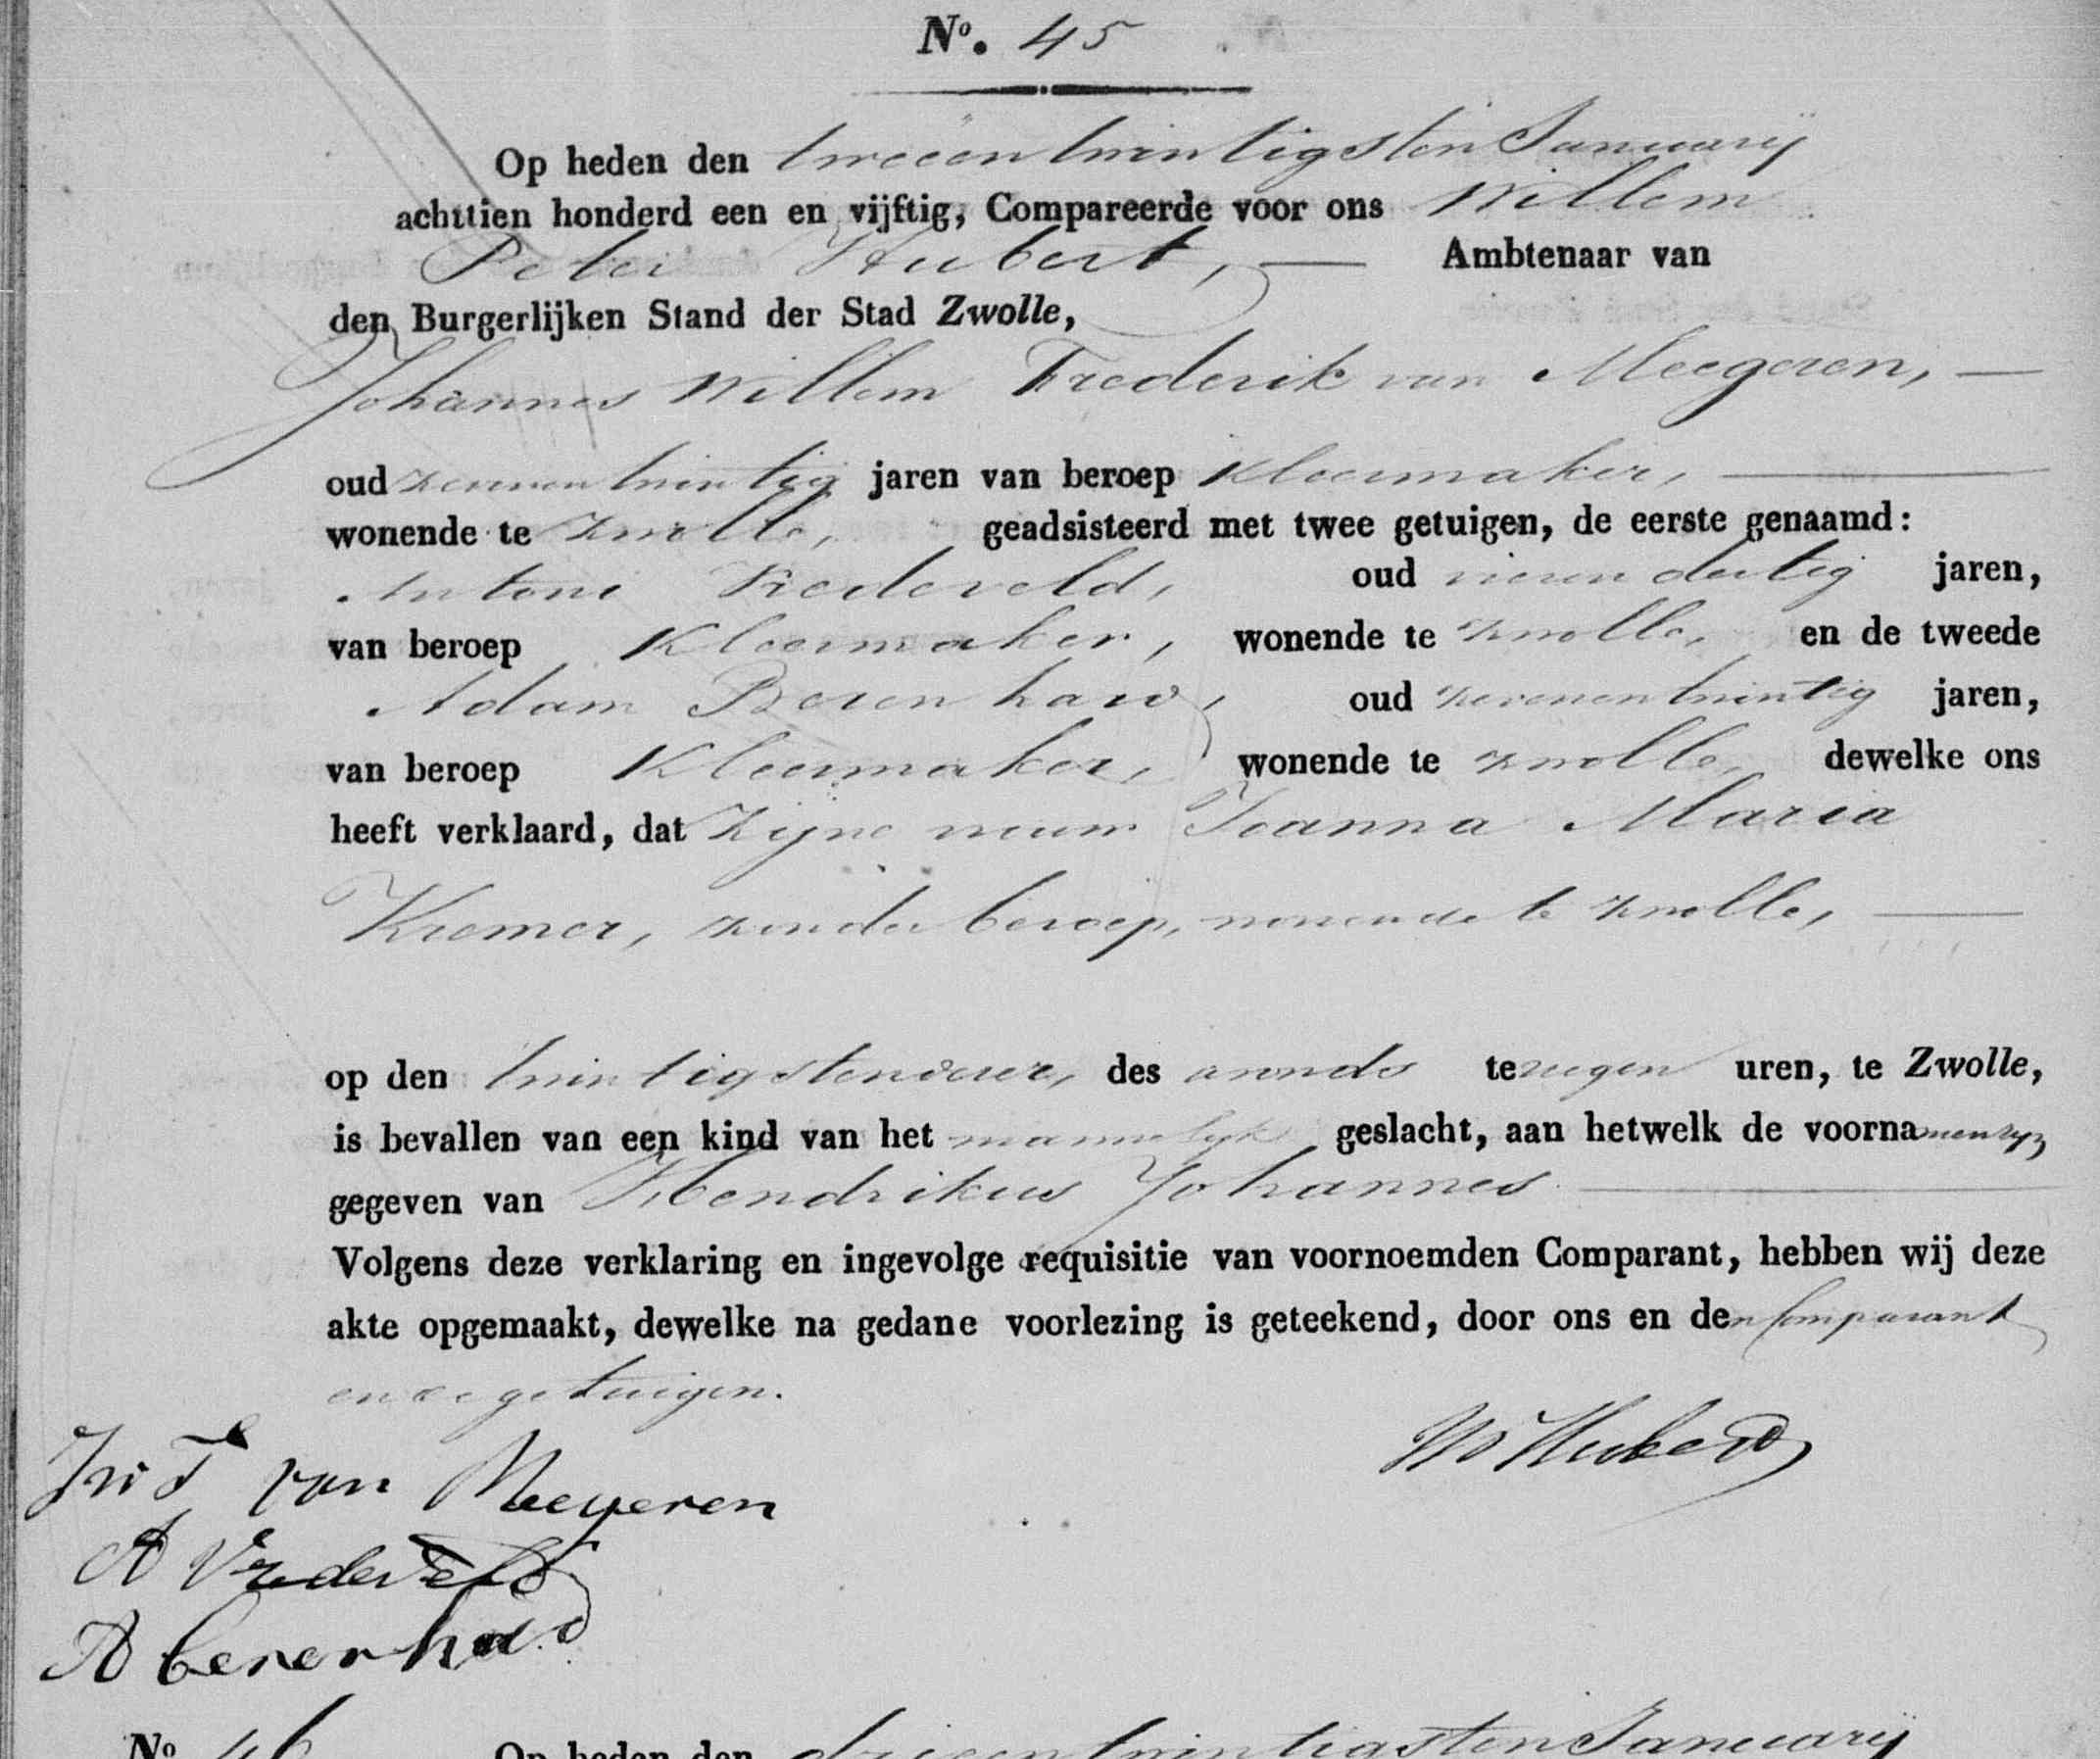 No. 45
Op heden den tweeentwintigsten January
achttien honderd een en vijftig, Compareerde voor ons Willem
Peter Hubert, Ambtenaar van
den Burgerlijken Stand der Stad Zwolle,
Johannes Willem Frederik van Meegeren,
oud zevenentwintig jaren van beroep Kleermaker,
wonende te Zwolle, geadsisteerd met twee getuigen, de eerste genaamd:
Antoni Vredeveld, oud vierendertig jaren,
van beroep Kleermaker, wonende te Zwolle, en de tweede
Adam oud zevenentwintig jaren,
van beroep Kleermaker, wonende te Zwolle, dewelke ons
heeft verklaard, dat zijne vrouw Joanna Maria
Kremer, zonder beroep, wonende te Zwolle,
op den twintigsten dezer, des avonds te negen uren, te Zwolle,
is bevallen van een kind van het mannelijk geslacht, aan hetwelk de voornamen zyn
gegeven van Hendrikus Johannes
Volgens deze verklaring en ingevolge requisitie van voornoemden Comparant, hebben wij deze
akte opgemaakt, dewelke na gedane voorlezing is geteekend, door ons en den Comparant
en de getuigen.
JWF van Meegeren
WP Hubert
A Vredeveld
A
No 46 Op heden den drieentwintigsten January